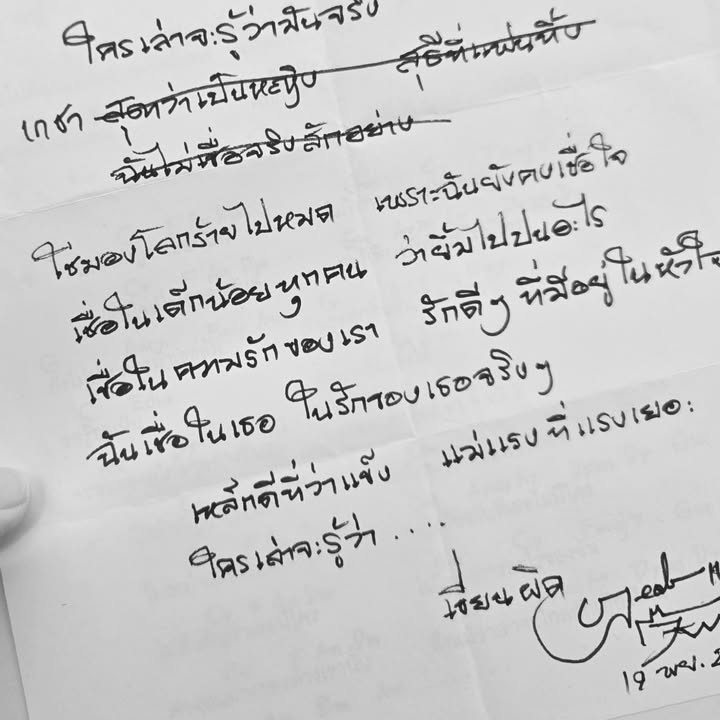 ใครเล่าจะรู้ว่ามันจริง
เกชา สุดทว่าเป็นหญิง สุธีที่แผ่นทึ้ง
ฉันไม่เชื่อจริงสักอย่าง
ใช่มองโลกร้ายไปหมด เพราะฉันยังคงเชื่อใจ
เชื่อในเด็กน้อยทุกคน ว่ายิ้มไปปนอะไร
เชื่อในความรักของเรา รักดีๆ ที่มีอยู่ในหัวใจ
ฉันเชื่อในเธอ ในรักของเธอจริงๆ
เหล็กดีที่ว่าแข็ง แม่แรงที่แรงเยอะ
ใครเล่าจะรู้ว่า ....
เขียนผิด
19 พย.